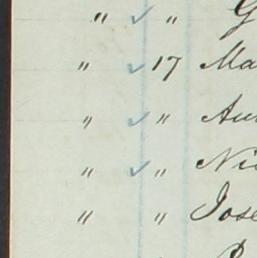 " ✓ " G
" ✓ 17 Ma
" ✓ " Au
" ✓ " Nic
" " Jose